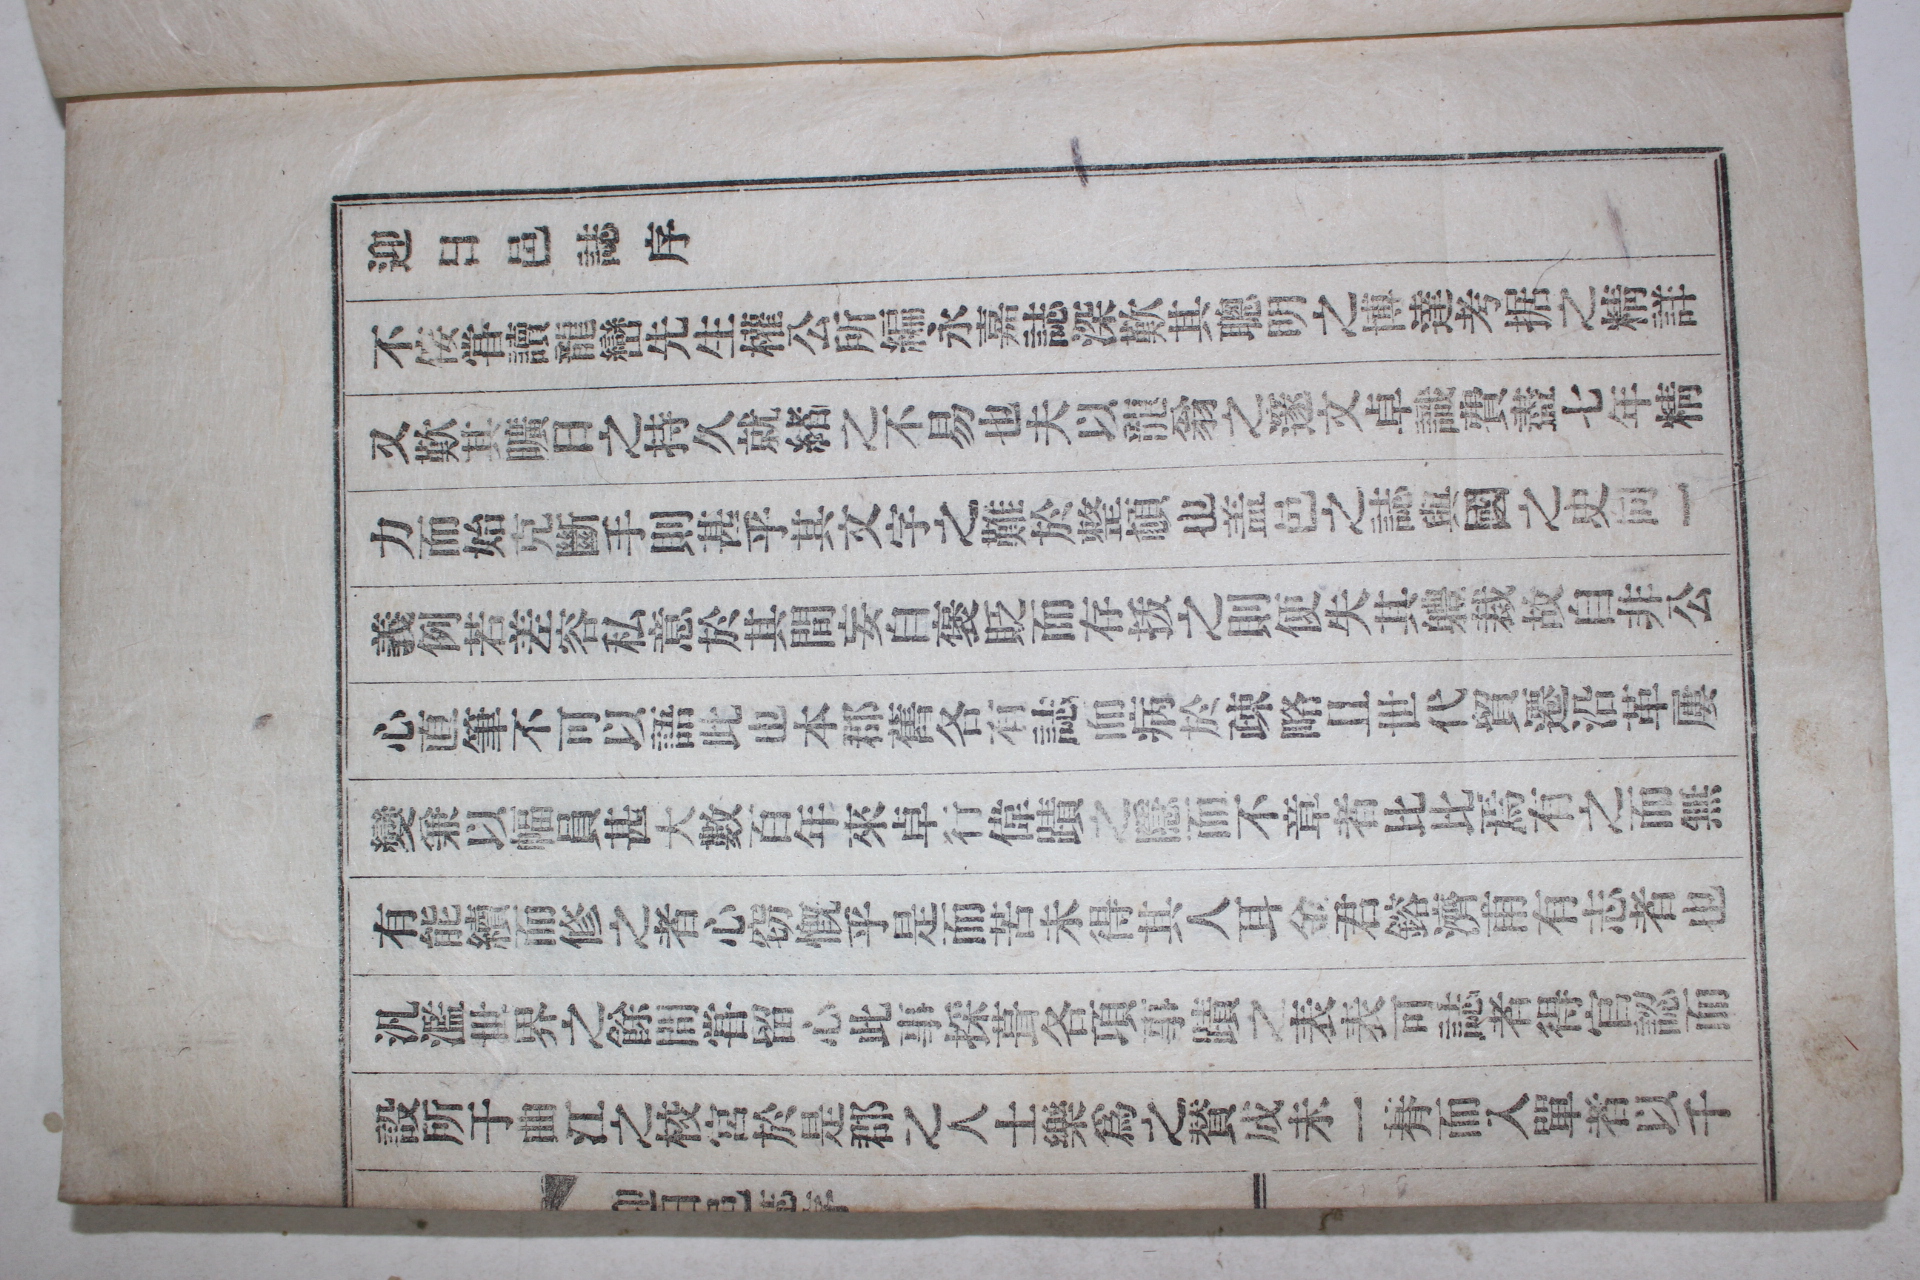 迎日邑誌序
不佞嘗讀龍巒先生權公所編永嘉誌深歎其聰明之博達考据之精詳
又歎其曠日之持久就緒之不易也夫以龍翁之邃文卓識費盡七年精
力而始克斷手則甚乎其文字之難於整頓也盖邑之誌與國之史同一
義例若差容私意於其間妄自褒貶而存拔之則便失其體裁故自非公
心直筆不可以語此也本郡舊各有誌而病於疎略且世代貿遷沿革屢
變兼以幅員甚大數百年來卓行偉蹟之隱而不章者比比爲有之而無
有能續而修之者心竊慨乎是而苦未得其人耳金君鎔濟甫有志者也
汎濫世界之餘間嘗留心此事採摭各項事蹟之表表可誌者得官認而
設所于曲江之校宮於是郡之人士樂爲之贊成未一朞而人單者以千
迎日邑誌序